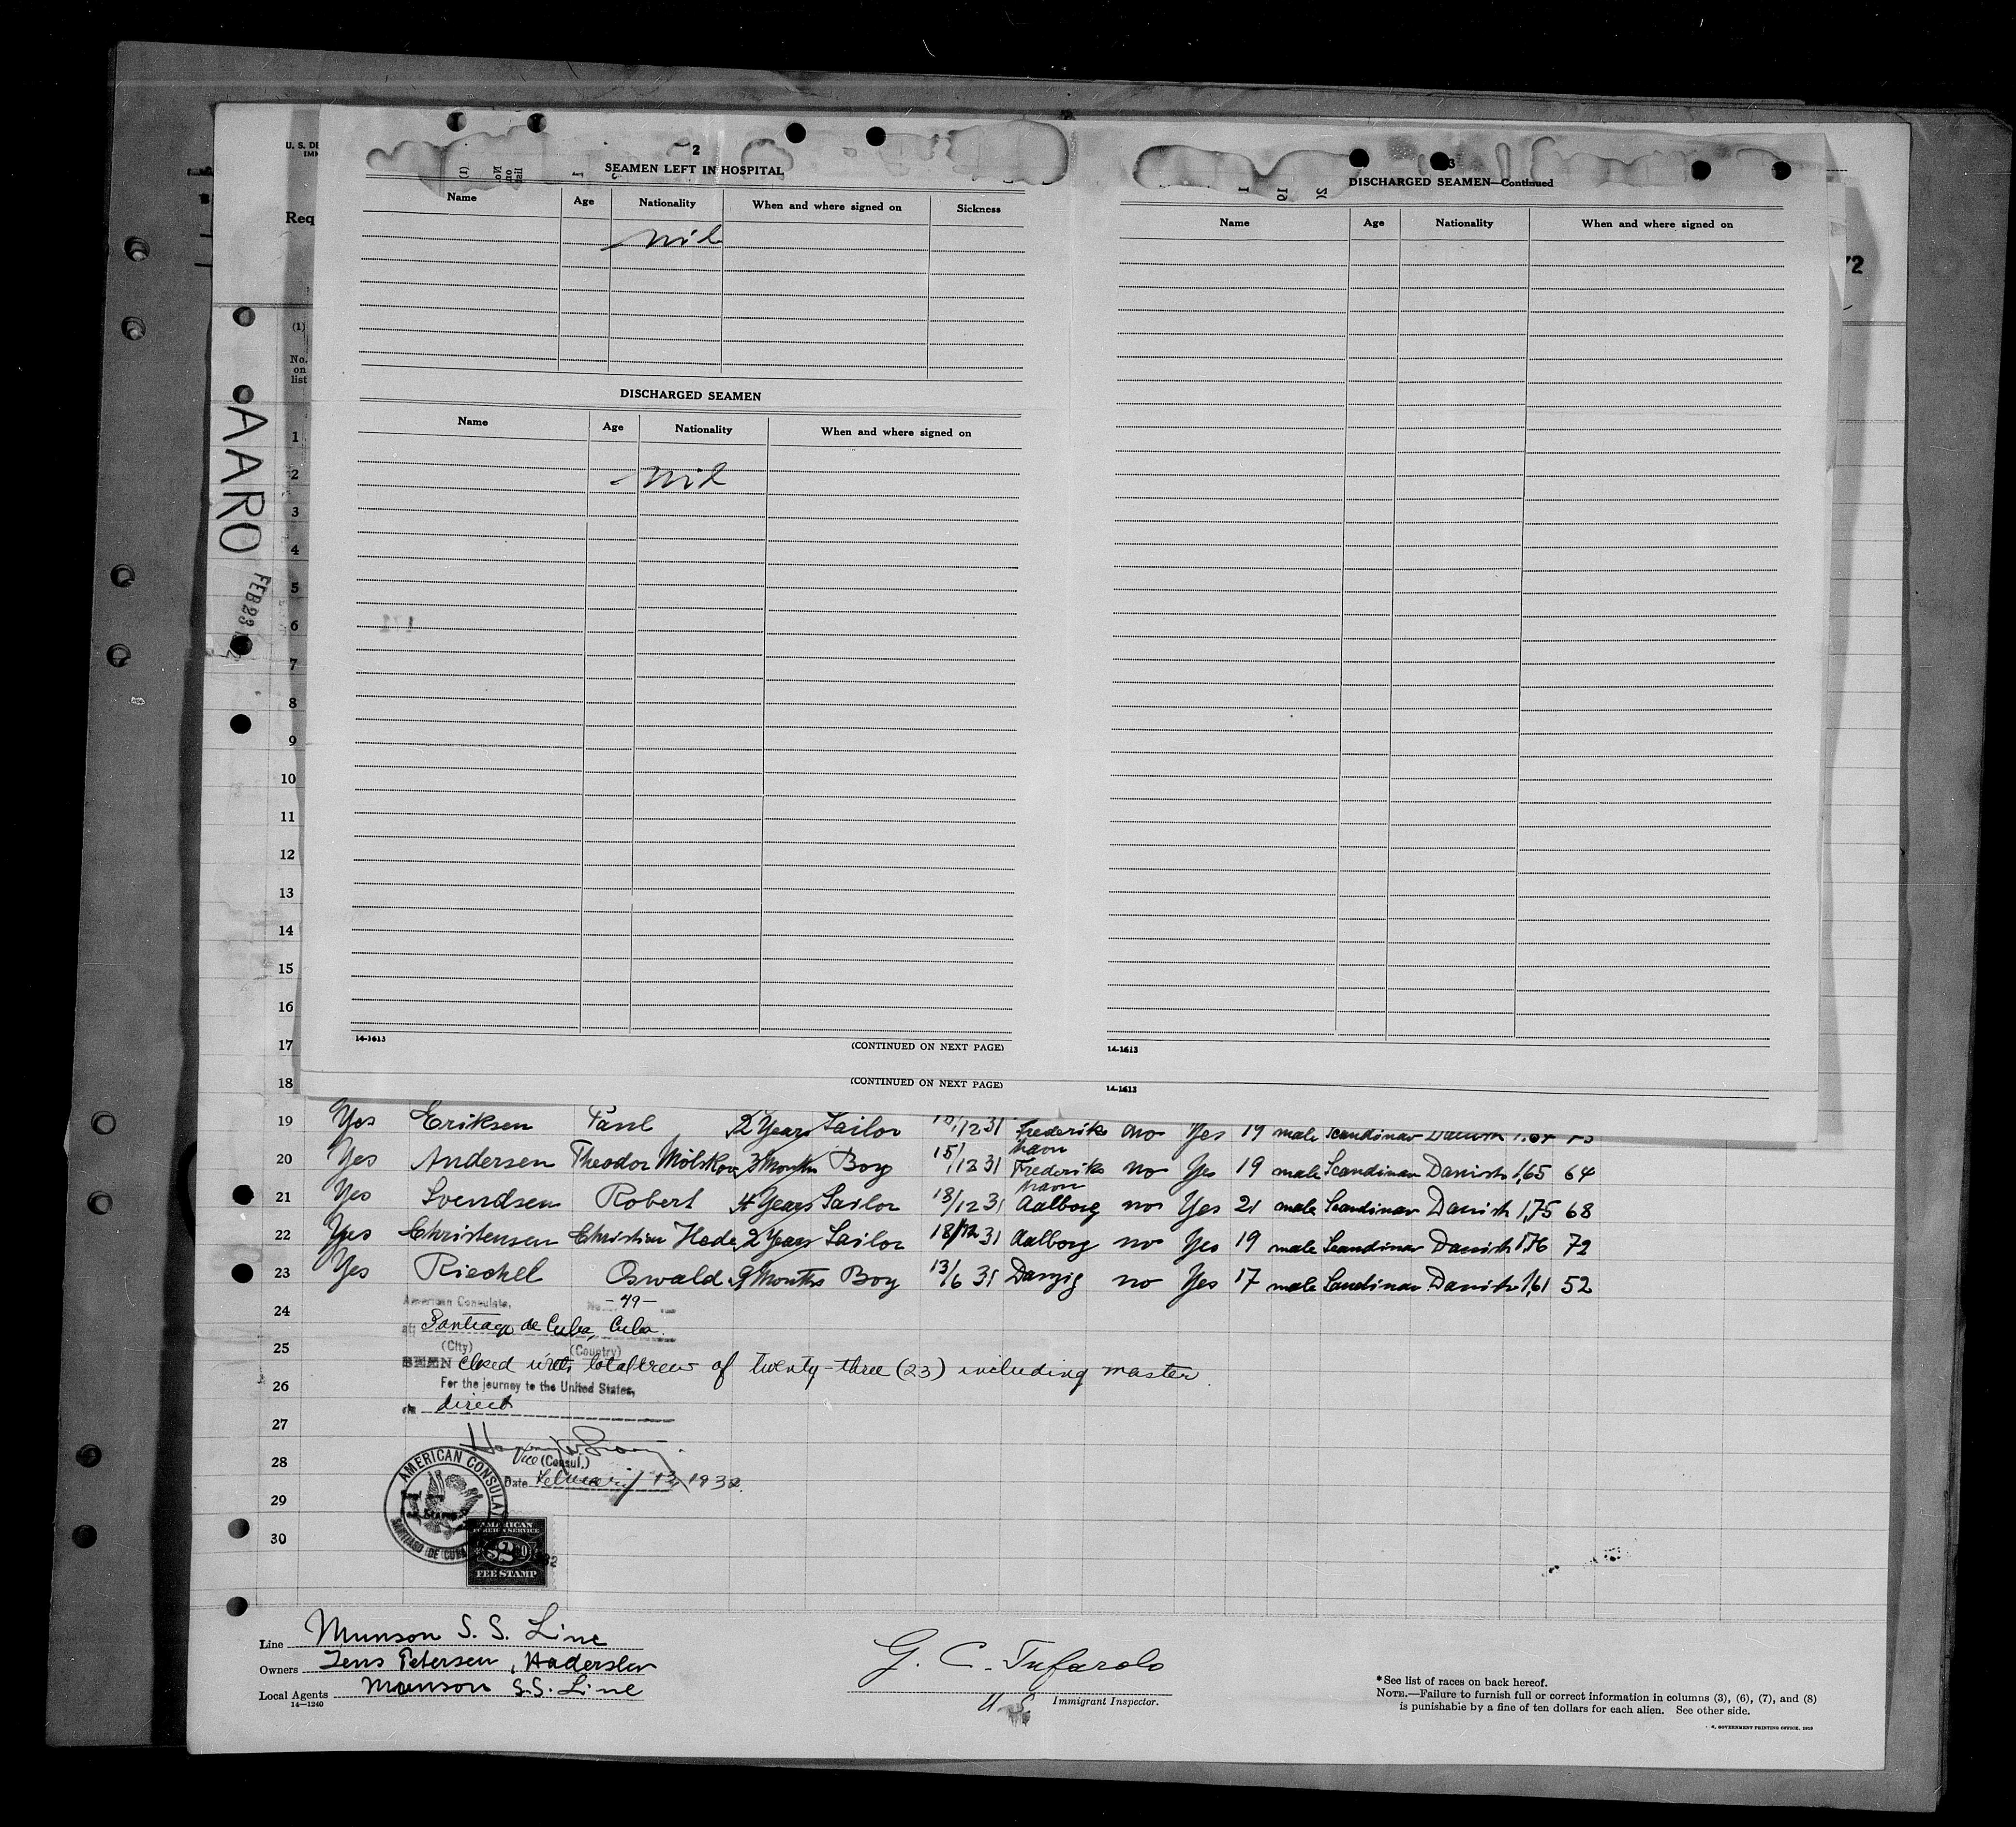 2
SEAMEN LEFT IN HOSPITAL
Name Age Nationality When and where signed on Sickness
nil
DISCHARGED SEAMEN
Name Age Nationality When and where signed on
nil
14-1613
(CONTINUED ON NEXT PAGE)
(CONTINUED ON NEXT PAGE)
3
DISCHARGED SEAMEN—Continued
Name Age Nationality When and where signed on
14-1613
14-1613
U. S. DE
IMM
Req
72
(1)
No.
on
list
AARO
FEB 23
1
2
3
4
5
6
7
8
9
10
11
12
13
14
15
16
17
18
19 Yes Eriksen Paul 2 Years Sailor /12 31 Frederiks no Yes 19 male Scandinav Danish
havn
20 Yes Andersen Theodor Mölskov 3 Months Boy 15/12 31 Frederiks no Yes 19 male Scandinav Danish 1,65 64
havn
21 Yes Svendsen Robert 4 Years Sailor 18/12 31 Aalborg no Yes 21 male Scandinav Danish 1,75 68
22 Yes Christensen Christian Hede 2 Years Sailor 18/12 31 Aalborg no Yes 19 male Scandinav Danish 1,76 72
23 Yes Riechel Oswald 9 Months Boy 13/6 31 Danzig no Yes 17 male Scandinav Danish 1,61 52
24
25
26
27
28
29
30
American Consulate, No. -49-
at Santiago de Cuba, Cuba
(City) (Country)
SEEN closed with total crew of twenty-three (23) including master.
For the journey to the United States,
via direct
Vice (Consul.)
Date February 13, 1932.
AMERICAN CONSULATE
SANTIAGO DE CUBA
AMERICAN
FOREIGN SERVICE
$2.00
FEE STAMP
Line Munson S. S. Line
Owners Jens Petersen, Haderslev
Local Agents Munson S.S. Line
14—1240
G. C. Tufarolo
U S Immigrant Inspector.
*See list of races on back hereof.
NOTE.—Failure to furnish full or correct information in columns (3), (6), (7), and (8)
is punishable by a fine of ten dollars for each alien. See other side.
GOVERNMENT PRINTING OFFICE